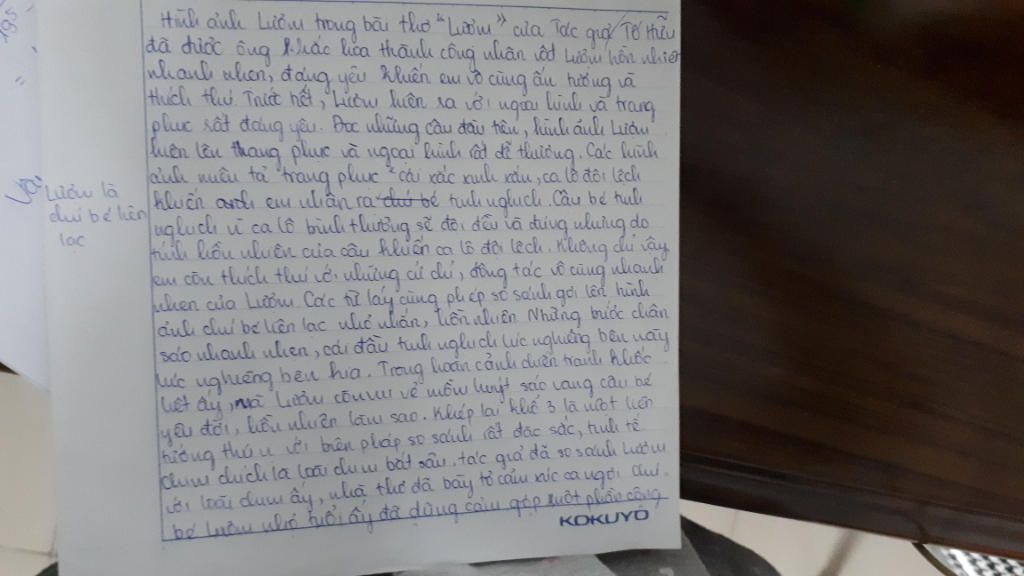 Hình ảnh Lượm trong bài thơ "Lượm" của Tác giả/Tố Hữu
đã được ông khắc họa thành công nhân vật Lượm hồn nhiên
nhanh nhẹn, đáng yêu khiến em vô cùng ấn tượng và
thích thú. Trước hết, Lượm hiện ra với ngoại hình và trang
phục rất đáng yêu. Đọc những câu đầu tiên, hình ảnh Lượm
hiện lên trang phục và ngoại hình rất dễ thương. Các hình
ảnh miêu tả trang phục "cái xắc xinh xắn, ca lô đội lệch
khiến em nhận ra chú bé tinh nghịch. Cậu bé tinh
nghịch vì ca lô bình thường sẽ đội đều và đúng nhưng do
tính hồn nhiên của cậu khiến ca lô đội lệch. Không chỉ vậy
em còn thích thú với những cử chỉ, động tác vô cùng nhanh
nhẹn của Lượm. Các từ láy cùng phép so sánh gợi lên hình
ảnh chú bé liên lạc nhỏ nhắn, hồn nhiên. Những bước chân
sáo nhanh nhẹn, cái đầu tinh nghịch lúc nghiêng bên này
lúc nghiêng bên kia. Trong hoàn cảnh chiến tranh khốc
liệt ấy, mà Lượm còn vui vẻ mồm huýt sáo vang cậu bé
yêu đời, hồn nhiên làm sao. Khép lại khổ 3 là một liên
tưởng thú vị với biện pháp so sánh rất đặc sắc, tinh tế
chim chích là loài chim bắt sâu. tác giả đã so sánh Lượm
với loài chim ấy, nhà thơ đã bày tỏ cảm xúc ca ngợi chú
bé Lượm nhỏ tuổi ấy đã dũng cảm góp một phần công
Lượm là
chú bé liên
lạc
KOKUYO